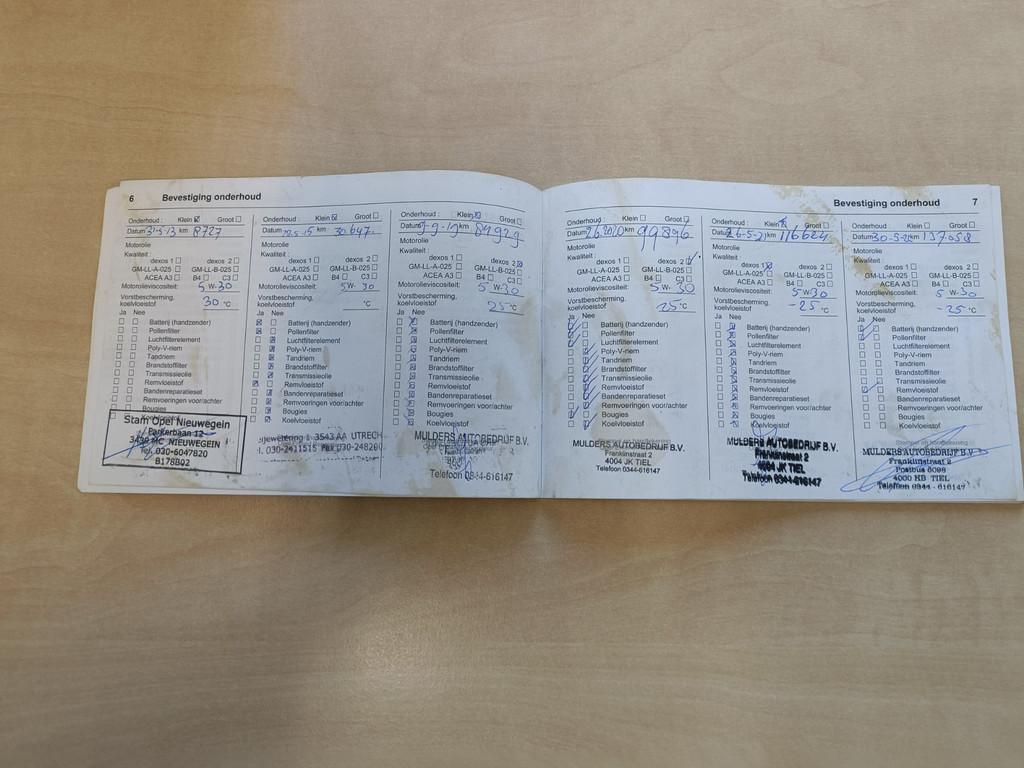 6 Bevestiging onderhoud
Onderhoud : Klein Groot
Datum 31-5-13 km 8727
Motorolie
Kwaliteit :
dexos 1 dexos 2
GM-LL-A-025 GM-LL-B-025
ACEA A3 B4 C3
Motorolieviscositeit: 5 W-30
Vorstbescherming,
koelvloeistof 30 °C
Ja Nee
Batterij (handzender)
Pollenfilter
Luchtfilterelement
Poly-V-riem
Tandriem
Brandstoffilter
Transmissieolie
Remvloeistof
Bandenreparatieset
Remvoeringen voor/achter
Bougies
Koelvloeistof
Stam Opel Nieuwegein
Parkerbaan 12
3439 MC NIEUWEGEIN
Tel. 030-6047820
B178B02
Onderhoud : Klein Groot
Datum km 30647
Motorolie
Kwaliteit :
dexos 1 dexos 2
GM-LL-A-025 GM-LL-B-025
ACEA A3 B4 C3
Motorolieviscositeit: 5 W- 30
Vorstbescherming,
koelvloeistof °C
Ja Nee
Batterij (handzender)
Pollenfilter
Luchtfilterelement
Poly-V-riem
Tandriem
Brandstoffilter
Transmissieolie
Remvloeistof
Bandenreparatieset
Remvoeringen voor/achter
Bougies
Koelvloeistof
1 3543 AA UTRECH
030-2411515 Fax 030-248260
Onderhoud : Klein Groot
Datum 9-9-19 km 84929
Motorolie
Kwaliteit :
dexos 1 dexos 2
GM-LL-A-025 GM-LL-B-025
ACEA A3 B4 C3
Motorolieviscositeit: 5 W-30
Vorstbescherming,
koelvloeistof -25 °C
Ja Nee
Batterij (handzender)
Pollenfilter
Luchtfilterelement
Poly-V-riem
Tandriem
Brandstoffilter
Transmissieolie
Remvloeistof
Bandenreparatieset
Remvoeringen voor/achter
Bougies
Koelvloeistof
MULDERS AUTOBEDRIJF B.V.
Telefoon 0344-616147
Bevestiging onderhoud 7
Onderhoud : Klein Groot
Datum km 99896
Motorolie
Kwaliteit :
dexos 1 dexos 2
GM-LL-A-025 GM-LL-B-025
ACEA A3 B4 C3
Motorolieviscositeit: 5 W- 30
Vorstbescherming,
koelvloeistof -25 °C
Ja Nee
Batterij (handzender)
Pollenfilter
Luchtfilterelement
Poly-V-riem
Tandriem
Brandstoffilter
Transmissieolie
Remvloeistof
Bandenreparatieset
Remvoeringen voor/achter
Bougies
Koelvloeistof
MULDERS AUTOBEDRIJF B.V.
Franklinstraat 2
4004 JK TIEL
Telefoon 0344-616147
Onderhoud : Klein Groot
Datum 26-5-21 km 116624
Motorolie
Kwaliteit :
dexos 1 dexos 2
GM-LL-A-025 GM-LL-B-025
ACEA A3 B4 C3
Motorolieviscositeit: 5 W-30
Vorstbescherming,
koelvloeistof -25 °C
Ja Nee
Batterij (handzender)
Pollenfilter
Luchtfilterelement
Poly-V-riem
Tandriem
Brandstoffilter
Transmissieolie
Remvloeistof
Bandenreparatieset
Remvoeringen voor/achter
Bougies
Koelvloeistof
MULDERS AUTOBEDRIJF B.V.
Franklinstraat 2
4004 JK TIEL
Telefoon 0344-616147
Onderhoud : Klein Groot
Datum km 137.058
Motorolie
Kwaliteit :
dexos 1 dexos 2
GM-LL-A-025 GM-LL-B-025
ACEA A3 B4 C3
Motorolieviscositeit: 5 W-30
Vorstbescherming,
koelvloeistof -25 °C
Ja Nee
Batterij (handzender)
Pollenfilter
Luchtfilterelement
Poly-V-riem
Tandriem
Brandstoffilter
Transmissieolie
Remvloeistof
Bandenreparatieset
Remvoeringen voor/achter
Bougies
Koelvloeistof
MULDERS AUTOBEDRIJF B.V.
Franklinstraat 2
Postbus 6098
4000 HB TIEL
Telefoon 0344 - 616147